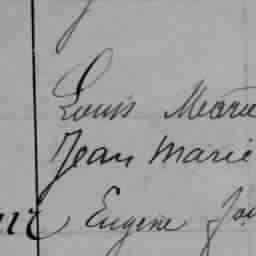 Louis Marie
Jean Marie
Eugène